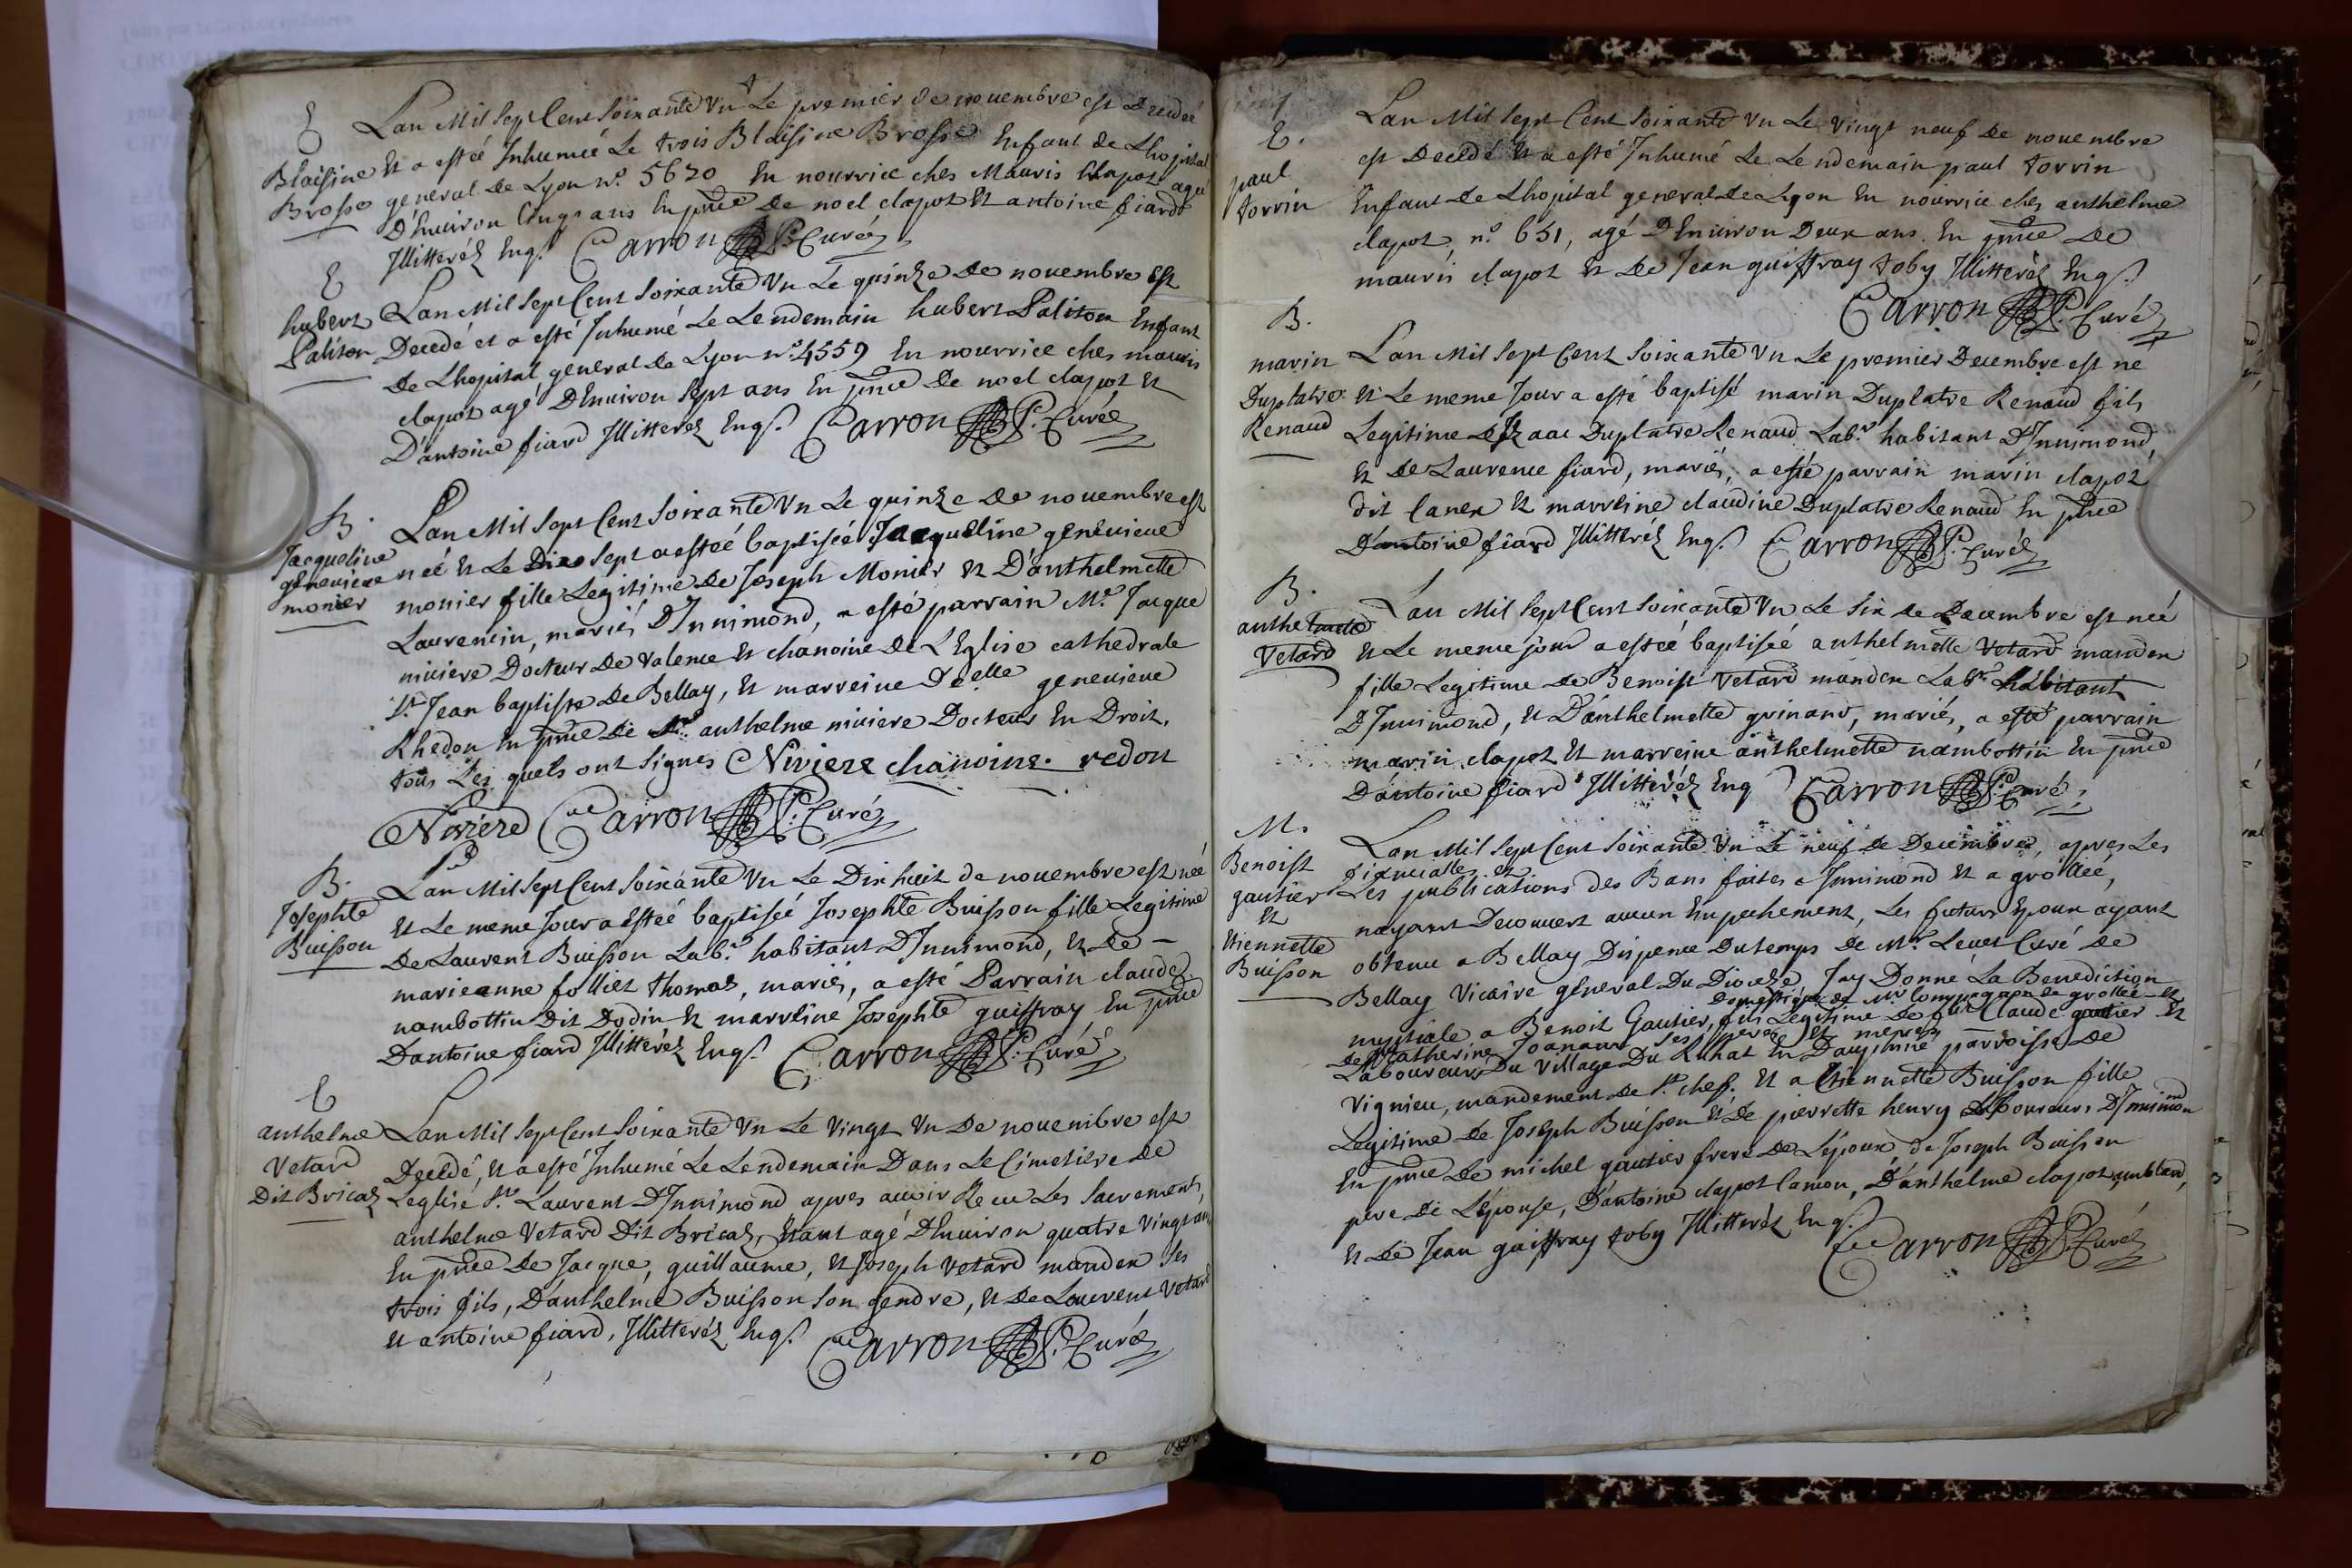 E
Blaisine
Brosse
Lan Mil Sept Cent Soixante Vn Le premier de nouembre est decedée
Et a estée Inhumée Le trois Blaisine Brosse Enfant de Lhopital
general de Lyon n.º 5620 En nourrice ches Mauris Clapot agée
D'Enuiron Cinq ans En pñce de noel clapot Et antoine fiard
Illitteréz Enq.s Carron P. Curé
E
hubert
Paliton
Lan Mil Sept Cent Soixante Vn Le quinze de nouembre Est
Decedé et a esté Inhumé Le Lendemain hubert Paliton Enfant
de Lhopital general de Lyon n.º 4559 En nourrice ches mauris
clapot agé D'Enuiron Sept ans En pñce de noel clapot Et
D'antoine fiard Illitterez Enq.s Carron P. Curé
B.
Jacqueline
geneuieue
monier
Lan Mil Sept Cent Soixante Vn Le quinze de nouembre est
née Et Le Dix Sept a estée baptisée Jacqueline geneuieue
monier fille Legitime de Joseph Monier Et D'anthelmette
Laurencin, mariés D'Innimond, a esté parrain M.r Jacque
niuiere Docteur de Valence Et chanoine de L'Eglise cathedrale
S.t Jean baptiste de Bellay, Et marreine D.elle geneuieue
Rhedon En pñce de S.r anthelme niuiere Docteur En Droit,
tous Les quels ont Signes Niviere chanoine. redon
Niviere Carron P. Curé
B.
Josephte
Buisson
Lan Mil Sept Cent Soixante Vn Le Dix huit de nouembre est née
Et Le meme Jour a Estée baptisée Josephte Buisson fille Legitime
de Laurent Buisson Lab.r habitant D'Innimond, Et de –
marieanne folliet thomas, mariés, a esté Parrain claude
nambottin Dit Dodin Et marreine Josephte guiffray En pñce
D'antoine fiard Illitteréz Enq.s Carron P. Curé
E
anthelme
Vetard
Dit Bricaz
Lan Mil Sept Cent Soixante Vn Le Vingt Vn De nouembre est
Decedé, Et a esté Inhumé Le Lendemain Dans Le Cimetiere de
Leglise S.t Laurent D'Innimond apres auoir Recu Les Sacrements,
anthelme Vetard Dit Bricaz, Etant agé D'Enuiron quatre Vingt ans
En pñce de Jacque, guillaume, Et Joseph Vetard manden Ses
trois fils, D'anthelme Buisson Son gendre, Et de Laurent Vetard
Et antoine fiard, Illitteréz Enq.s Carron P. Curé
E.
paul
torrin
Lan Mil Sept Cent Soixante Vn Le Vingt neuf de nouembre
est Decedé Et a esté Inhumé Le Lendemain paul torrin
Enfant de Lhopital general de Lyon En nourrice ches anthelme
clapot, n.º 651, agé D'Enuiron Deux ans. En pñce de
mauris clapot Et de Jean guiffray toby Illitteréz Enq.s
Carron P. Curé
B.
marin
Duplatre
Renaud
Lan Mil Sept Cent Soixante Vn Le premier Decembre est né
Et Le meme Jour a esté baptisé marin Duplatre Renaud fils
Legitime de Izaac Duplatre Renaud Lab.r habitant D'Innimond,
Et de Laurence fiard, mariés, a esté parrain marin clapot
dit Canen Et marreine claudine Duplatre Renaud En pñce
D'antoine fiard Illitteréz Enq.s Carron P. Curé
B.
anthelmette
Vetard
Lan Mil Sept Cent Soixante Vn Le Six de Decembre est née
Et Le meme jour a estée baptisée anthelmette Vetard manden
fille Legitime de Benoist Vetard manden Lab.r habitant
D'Innimond, Et D'anthelmette guinand, mariés, a esté parrain
marin clapot Et marreine anthelmette nambottin En pñce
D'antoine fiard Illitteréz Enq Carron P. Curé
M.
Benoist
gautier
Et
Etiennette
Buisson
Lan Mil Sept Cent Soixante Vn Le neuf de Decembre, apres Les
fiancialles et
Les publications des Bans faites a Innimond Et a grollée,
nayant Decouuert aucun Empechement, Les futurs Epoux ayant
obtenu a Bellay Dispence Du temps de M.r Leuet Curé de
Bellay Vicaire general Du Dioceze, Jay Donné La Benediction
domestique de M.r Compagnon de grollée et
nuptiale a Benoit Gautier, fils Legitime de feu Claude gautier Et
de Catherine Joanard Ses peres Et meres
Laboureurs Du Village Du Ruhat En Dauphiné parroisse de
Vignieu, mandement de S.t chef. Et a Etiennette Buisson fille
Legitime de Joseph Buisson Et de pierrette henry Laboureurs D'Innimond
En pñce de michel gautier frere de L'epoux de Joseph Buisson
pere de L'epouse, D'antoine clapot Camon, D'anthelme clapot umblan,
Et de Jean guiffray toby Illitteréz Enq.s
Carron P. Curé